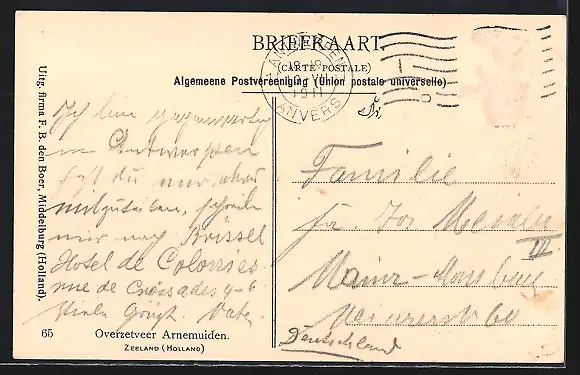 BRIEFKAART.
(CARTE POSTALE)
Algemeene Postvereeniging (Union postale universelle)
ANTWERPEN
1911
ANVERS
Uitg. firma F. B. den Boer, Middelburg (Holland).
Ich bin gegenwärtig
in Antwerpen
hast du mir etwas
mitzuteilen, schreibe
mir nach Brüssel
Hotel de Colonies
rue de Croisades 4-6
Viele Grüße. Vater.
Familie
Mainz-Mombach
III
Deutschland
65 Overzetveer Arnemuiden.
ZEELAND (HOLLAND)